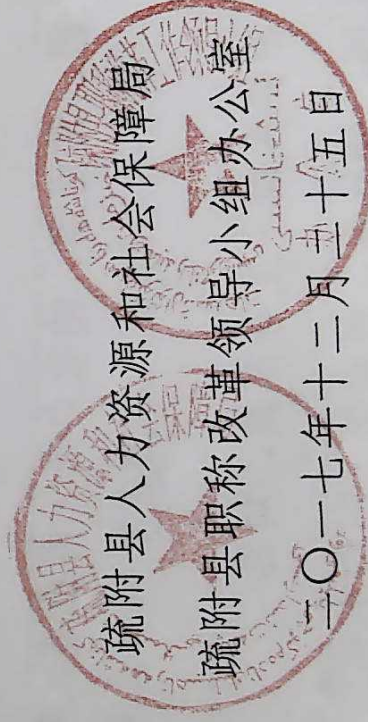 疏附县人力资源和社会保障局
疏附县职称改革领导小组办公室
二〇一七年十二月二十五日